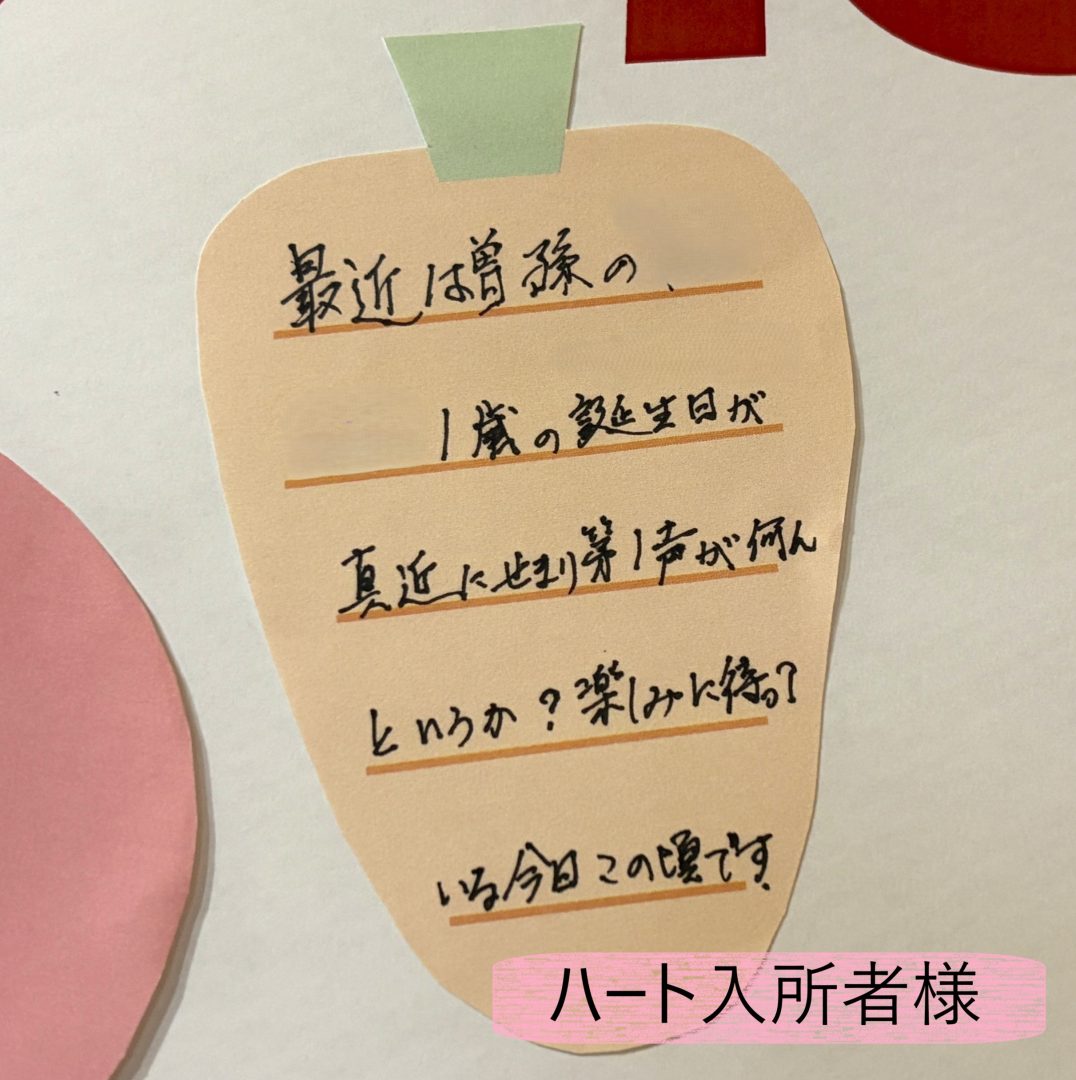 最近は曽孫の
1歳の誕生日が
真近にせまり第1声が何ん
というか?楽しみに待って
いる今日この頃です。
ハート入所者様